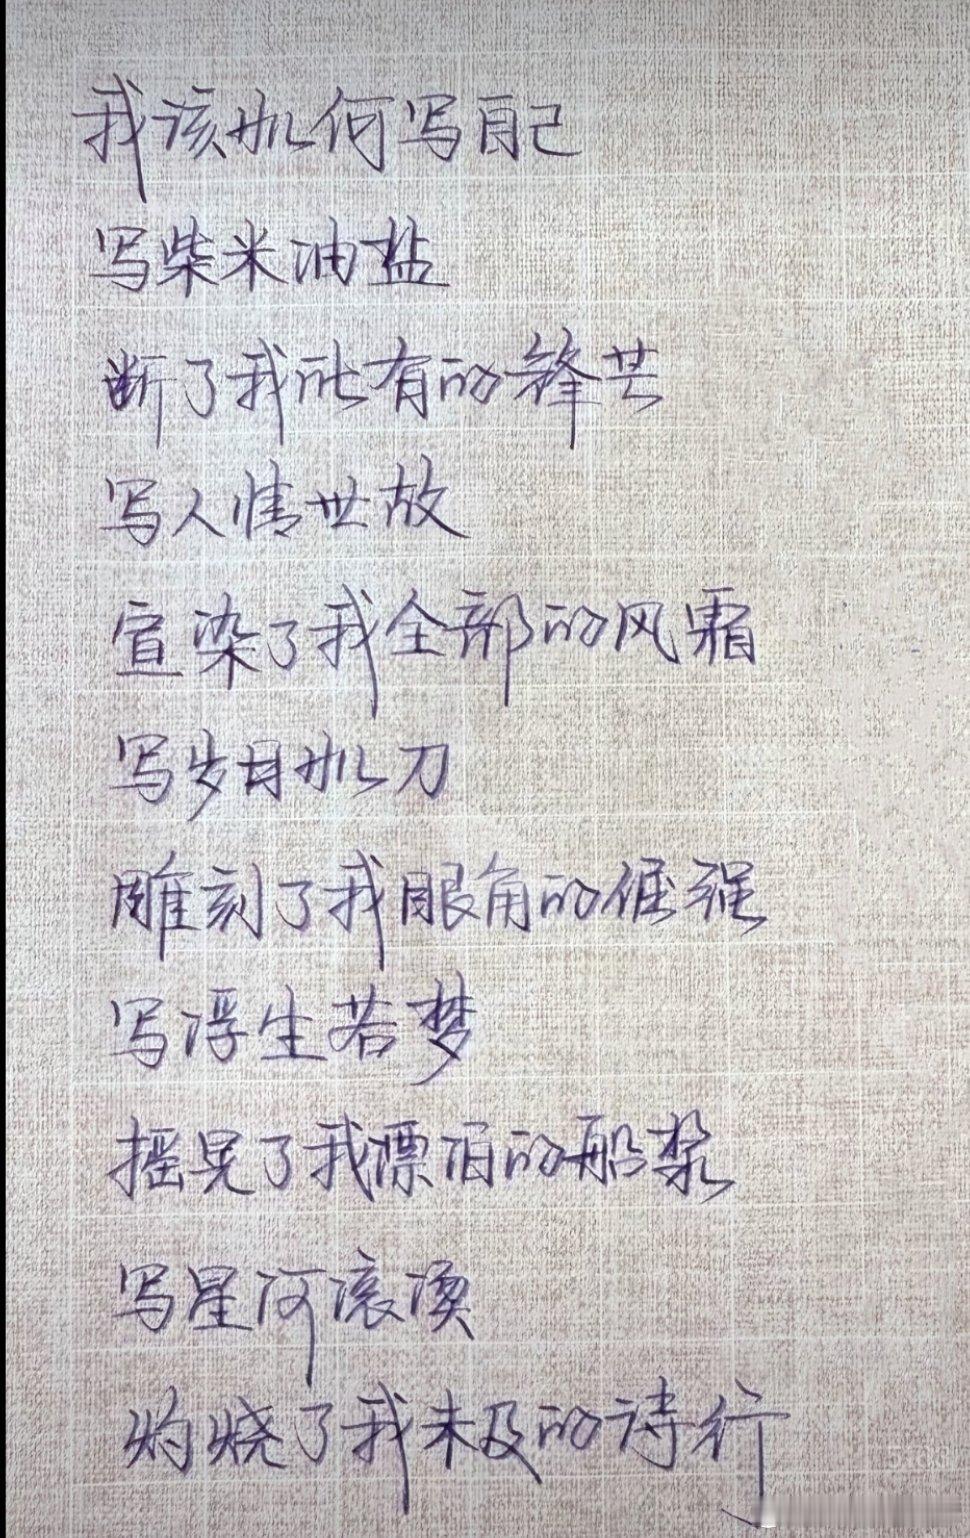 我该如何写自己
写柴米油盐
断了我所有的锋芒
写人情世故
宣染了我全部的风霜
写岁月如刀
雕刻了我眼角的倔强
写浮生若梦
摇晃了我漂泊的船桨
写星河滚烫
灼烧了我未及的诗行